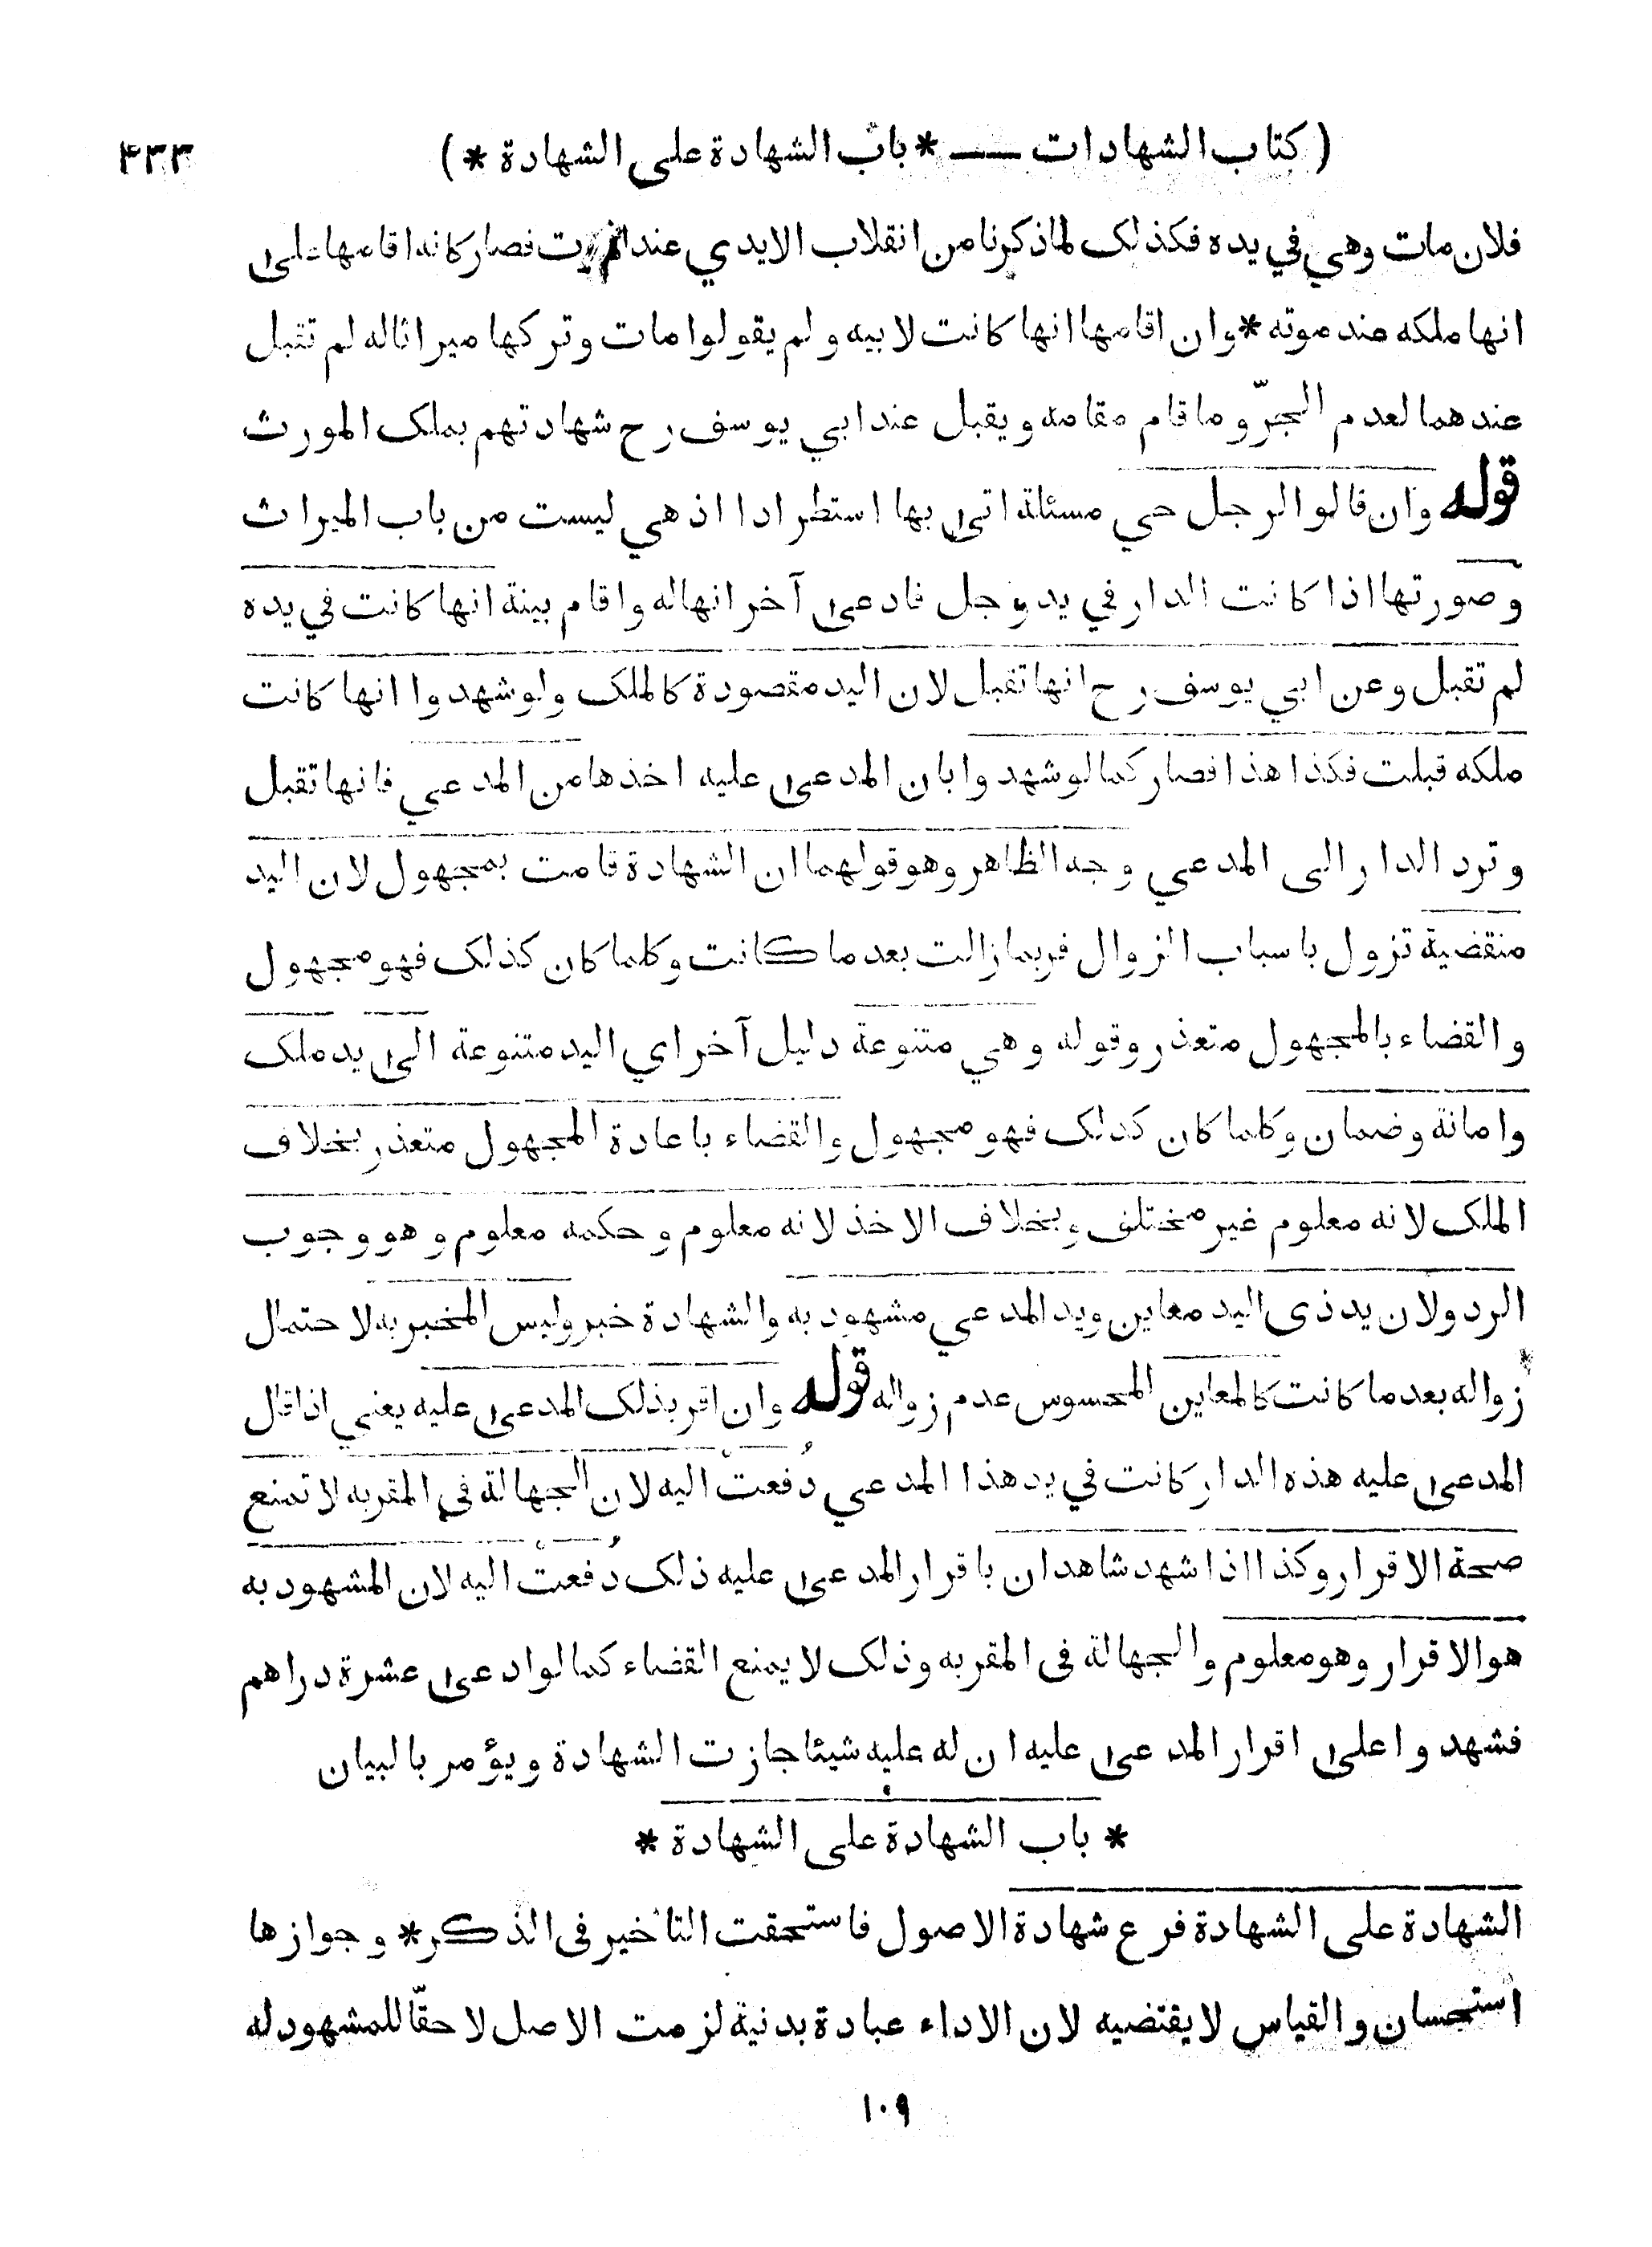 ( كتاب الشهادات — * باب الشهادة على الشهادة * ) ۴۳۳
فلان مات وهي في يده فكذلك لماذكرنا من انقلاب الايدي عند الموت فصار كانه اقامها على
انها ملكه عند موته * وان اقامها انها كانت لابيه و لم يقولوا مات وتركها ميراثاله لم تقبل
عندهما لعدم الجرّ وما قام مقامه ويقبل عند ابي يوسف رح شهادتهم بملك المورث
قوله وان قالوا لرجل حي مسئلة اتى بها استطرادا اذ هي ليست من باب الميراث
وصورتها اذا كانت الدار في يد رجل فادعى آخر انها له واقام بينة انها كانت في يده
لم تقبل وعن ابي يوسف رح انها تقبل لان اليد مقصودة كالملك ولو شهدوا انها كانت
ملكه قبلت فكذا هذا فصار كما لو شهدوا بان المدعى عليه اخذها من المدعي فانها تقبل
وترد الدار الى المدعي وجه الظاهر وهو قولهما ان الشهادة قامت بمجهول لان اليد
منقضية تزول باسباب الزوال فربما زالت بعد ما كانت وكلما كان كذلك فهو مجهول
والقضاء بالمجهول متعذر وقوله وهي متنوعة دليل آخر اي اليد متنوعة الى يد ملك
وامانة وضمان وكلما كان كذلك فهو مجهول والقضاء باعادة المجهول متعذر بخلاف
الملك لانه معلوم غير مختلف وبخلاف الاخذ لانه معلوم وحكمه معلوم وهو وجوب
الرد ولان يد ذى اليد معاين ويد المدعي مشهود به والشهادة خبر وليس المخبر به لاحتمال
زواله بعد ما كانت كالمعاين المحسوس عدم زواله قوله وان اقر بذلك المدعى عليه يعني اذا قال
المدعى عليه هذه الدار كانت في يد هذا المدعي دُفعتْ اليه لان الجهالة في المقر به لا تمنع
صحة الاقرار وكذا اذا شهد شاهدان باقرار المدعى عليه ذلك دُفعتْ اليه لان المشهود به
هو الاقرار وهو معلوم والجهالة في المقر به وذلك لا يمنع القضاء كما لو ادعى عشرة دراهم
فشهدوا على اقرار المدعى عليه ان له عليه شيئا جازت الشهادة ويؤمر بالبيان
* باب الشهادة على الشهادة *
الشهادة على الشهادة فرع شهادة الاصول فاستحقت التاخير في الذكر * وجوازها
استحسان والقياس لا يقتضيه لان الاداء عبادة بدنية لزمت الاصل لا حقّا للمشهود له
۱۰۹